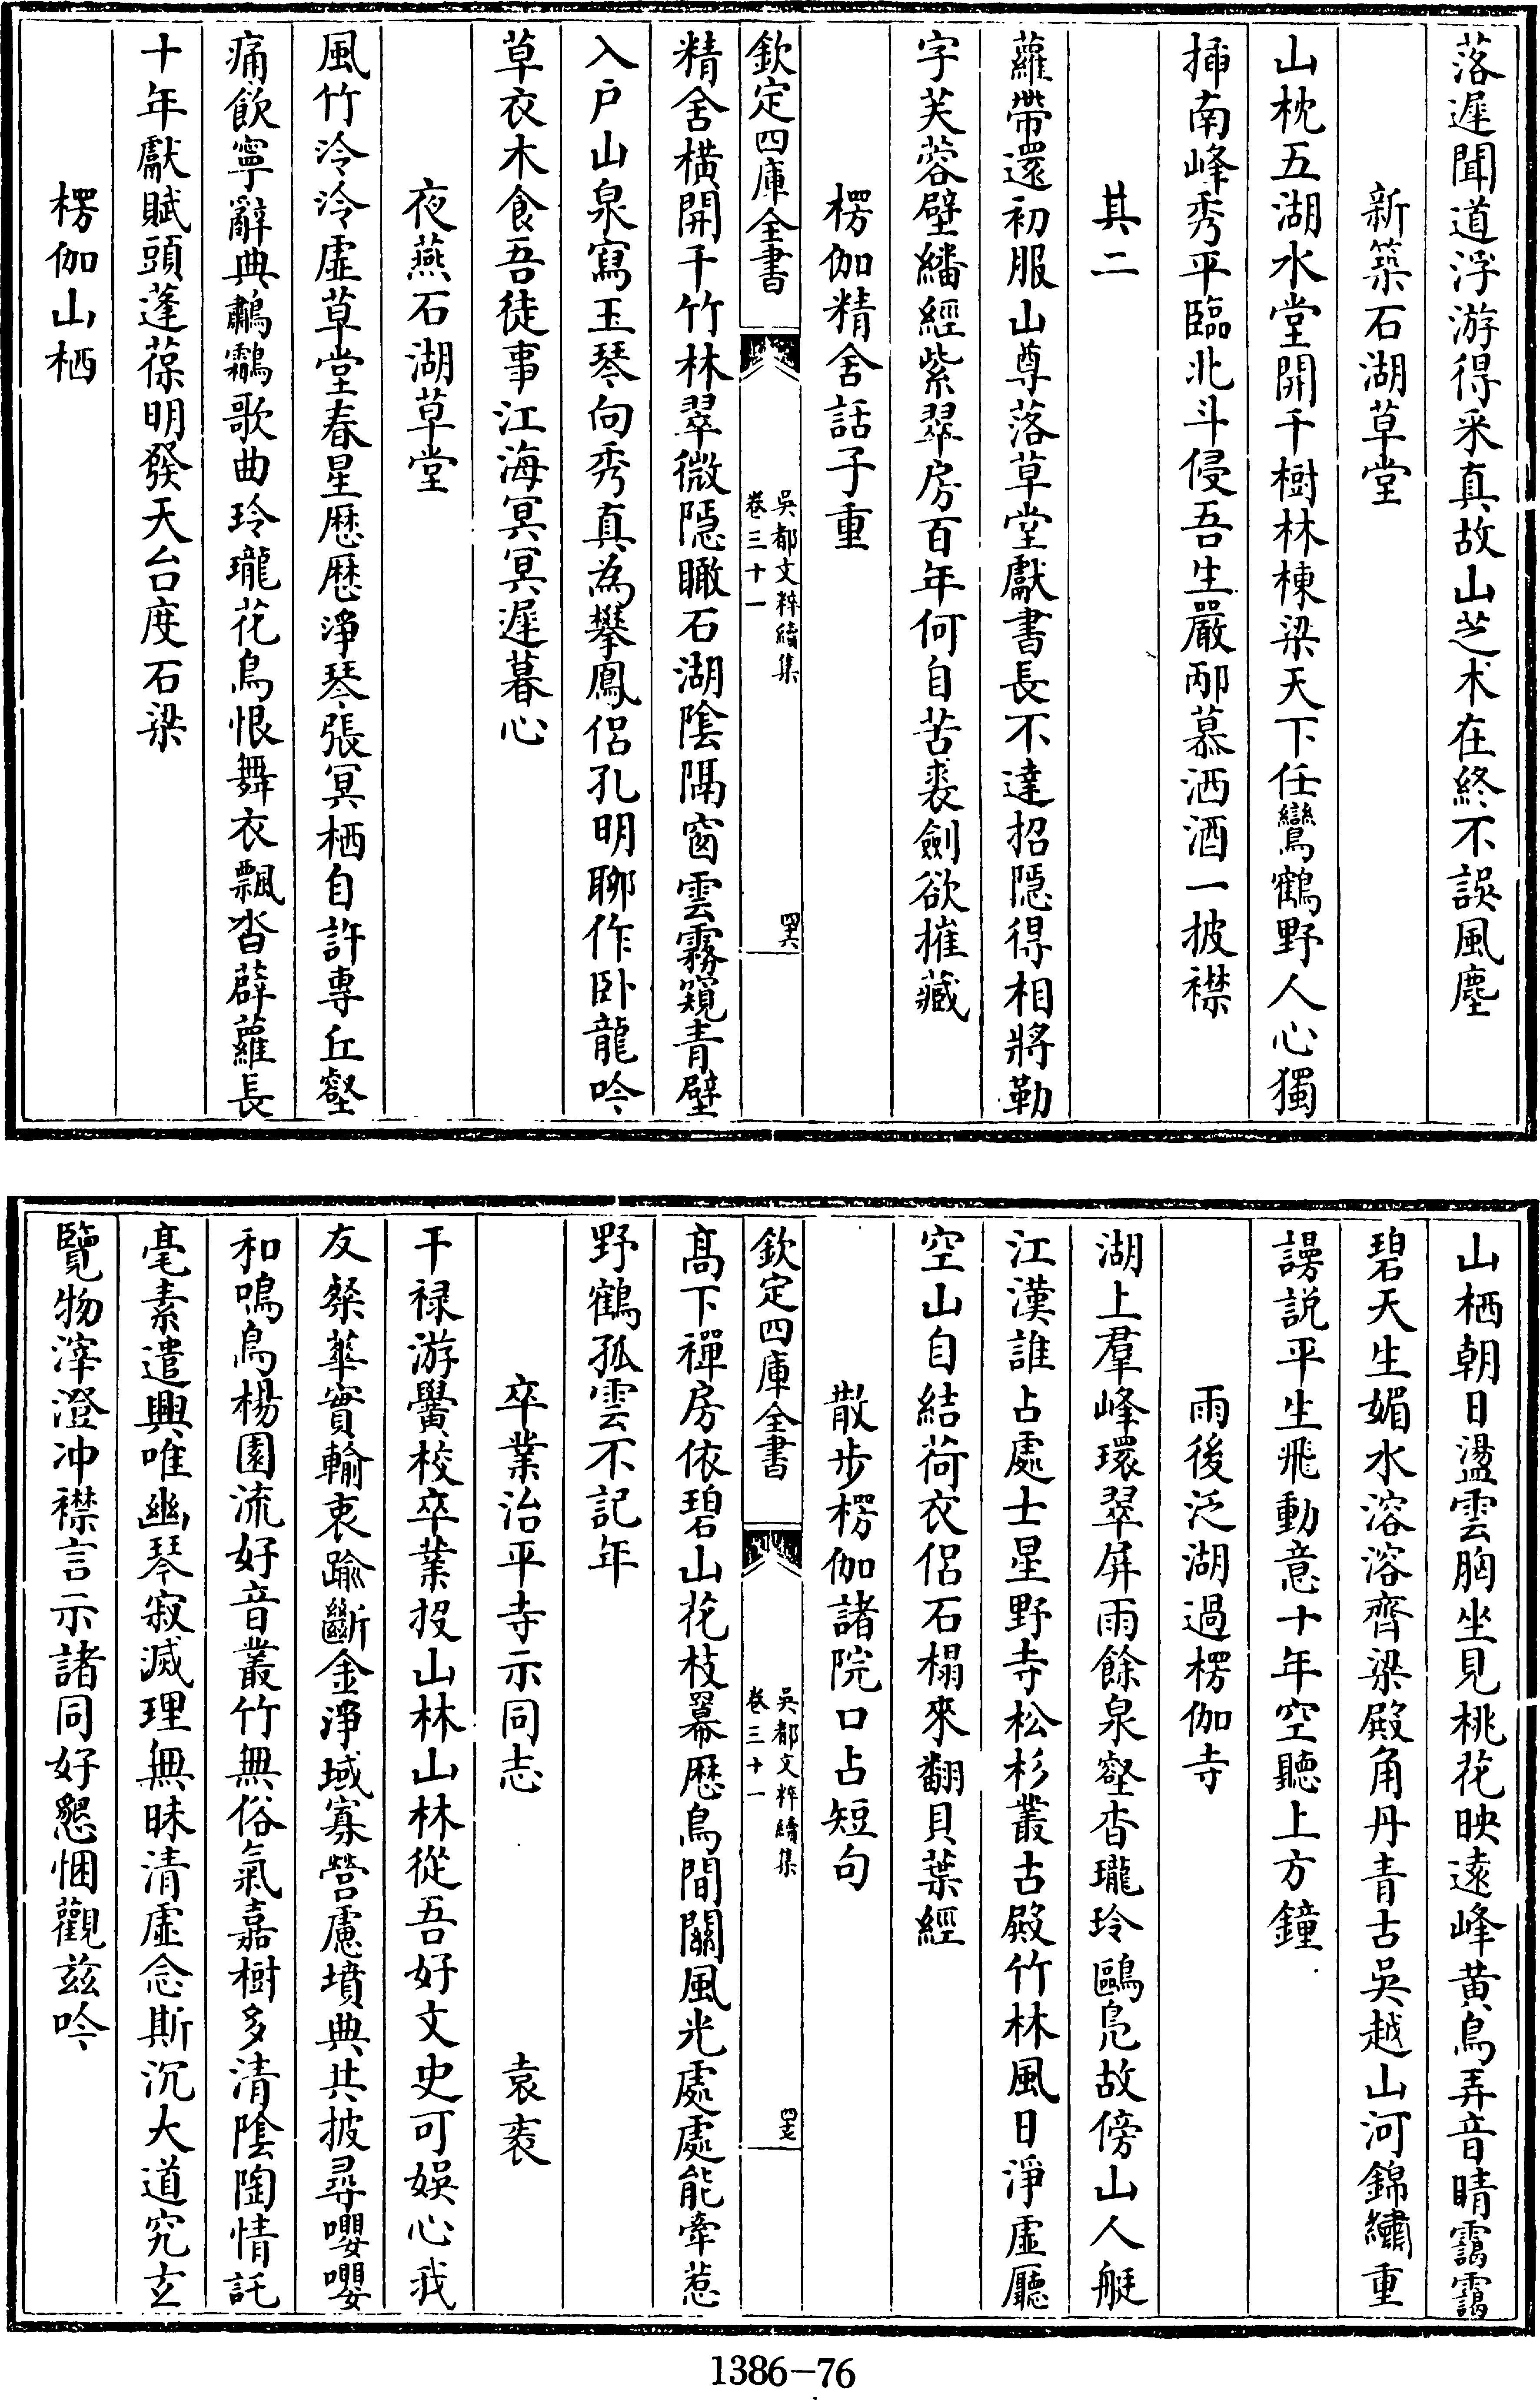 落遲聞道浮游得采真故山芝术在終不誤風塵
新築石湖草堂
山枕五湖水堂開千樹林棟梁天下任鸞鶴野人心獨
揷南峰秀平臨北斗侵吾生嚴邴慕洒酒一披襟
其二
蘿帶還初服山尊落草堂獻書長不達招隱得相將勒
字芙蓉壁繙經紫翠房百年何自苦裘劍欲摧藏
楞伽精舍話子重
欽定四庫全書
吳都文粹續集
卷三十一
四六
精舍橫開千竹林翠微隱瞰石湖陰隔窗雲霧窺青壁
入戶山泉寫玉琴向秀真為攀鳳侶孔明聊作卧龍吟
草衣木食吾徒事江海冥冥遲暮心
夜燕石湖草堂
風竹泠泠虛草堂春星歷歷淨琴張冥栖自許專丘壑
痛飲寧辭典鷫鸘歌曲玲瓏花鳥恨舞衣飄沓薜蘿長
十年獻賦頭蓬葆明發天台度石梁
楞伽山栖
山栖朝日盪雲胸坐見桃花映遠峰黄鳥弄音晴靄靄
碧天生媚水溶溶齊梁殿角丹青古吳越山河錦繡重
謾説平生飛動意十年空聽上方鐘
雨後泛湖過楞伽寺
湖上羣峰環翠屏雨餘泉壑杳瓏玲鷗鳬故傍山人艇
江漢誰占處士星野寺松杉叢古殿竹林風日淨虛廳
空山自結荷衣侶石榻來翻貝葉經
散步楞伽諸院口占短句
欽定四庫全書
吳都文粹續集
卷三十一
四七
髙下禪房依碧山花枝羃歷鳥間關風光處處能牽惹
野鶴孤雲不記年
卒業治平寺示同志
袁袠
干禄游黌校卒業投山林山林從吾好文史可娱心我
友粲華實輸衷踰斷金淨域寡營慮墳典共披尋嚶嚶
和鳴鳥楊園流好音叢竹無俗氣嘉樹多清陰陶情託
毫素遣興唯幽琴寂滅理無昧清虛念斯沉大道究玄
覽物滓澄冲襟言示諸同好懇悃觀兹吟
1386-76